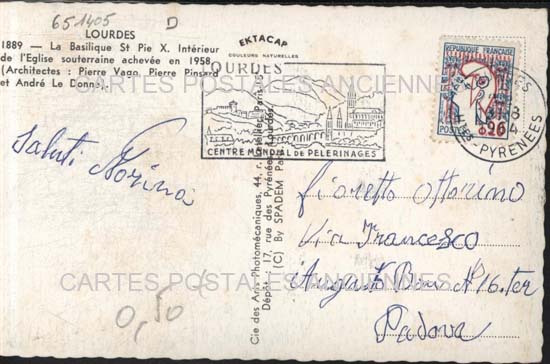 651405 D
LOURDES
1889 — La Basilique St Pie X. Intérieur
de l'Eglise souterraine achevée en 1958
(Architectes : Pierre Vago, Pierre Pinsard
et André Le Donné).
EKTACAP
COULEURS NATURELLES
OURDES
CENTRE MONDIAL DE PÈLERINAGES
REPUBLIQUE FRANCAISE
POSTES
HTES-PYRENEES
Saluti Norina
0,50
Cie des Arts Photomécaniques, 44, r. Letellier, Paris
Dépôt : 17, rue des Pyrénées, Lourdes
(C) By SPADEM Paris
Fioretto Ottorino
Via Francesco
N 16 ter
Padova
CARTES POSTALES ANCIENNES
CARTES POSTALES ANCIENNES